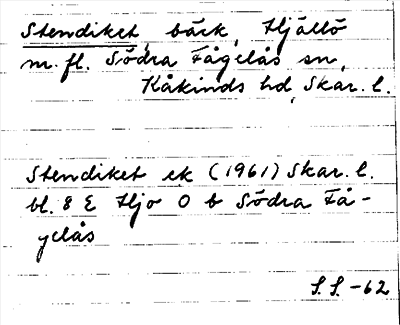 Stendiket, bäck, Hjällö
m.fl. Södra Fågelås sn,
Kåkinds hd, Skar. l.
Stendiket ek (1961) Skar. l.
bl. 8 E Hjo O b Södra Få-
gelås
S.S. -62